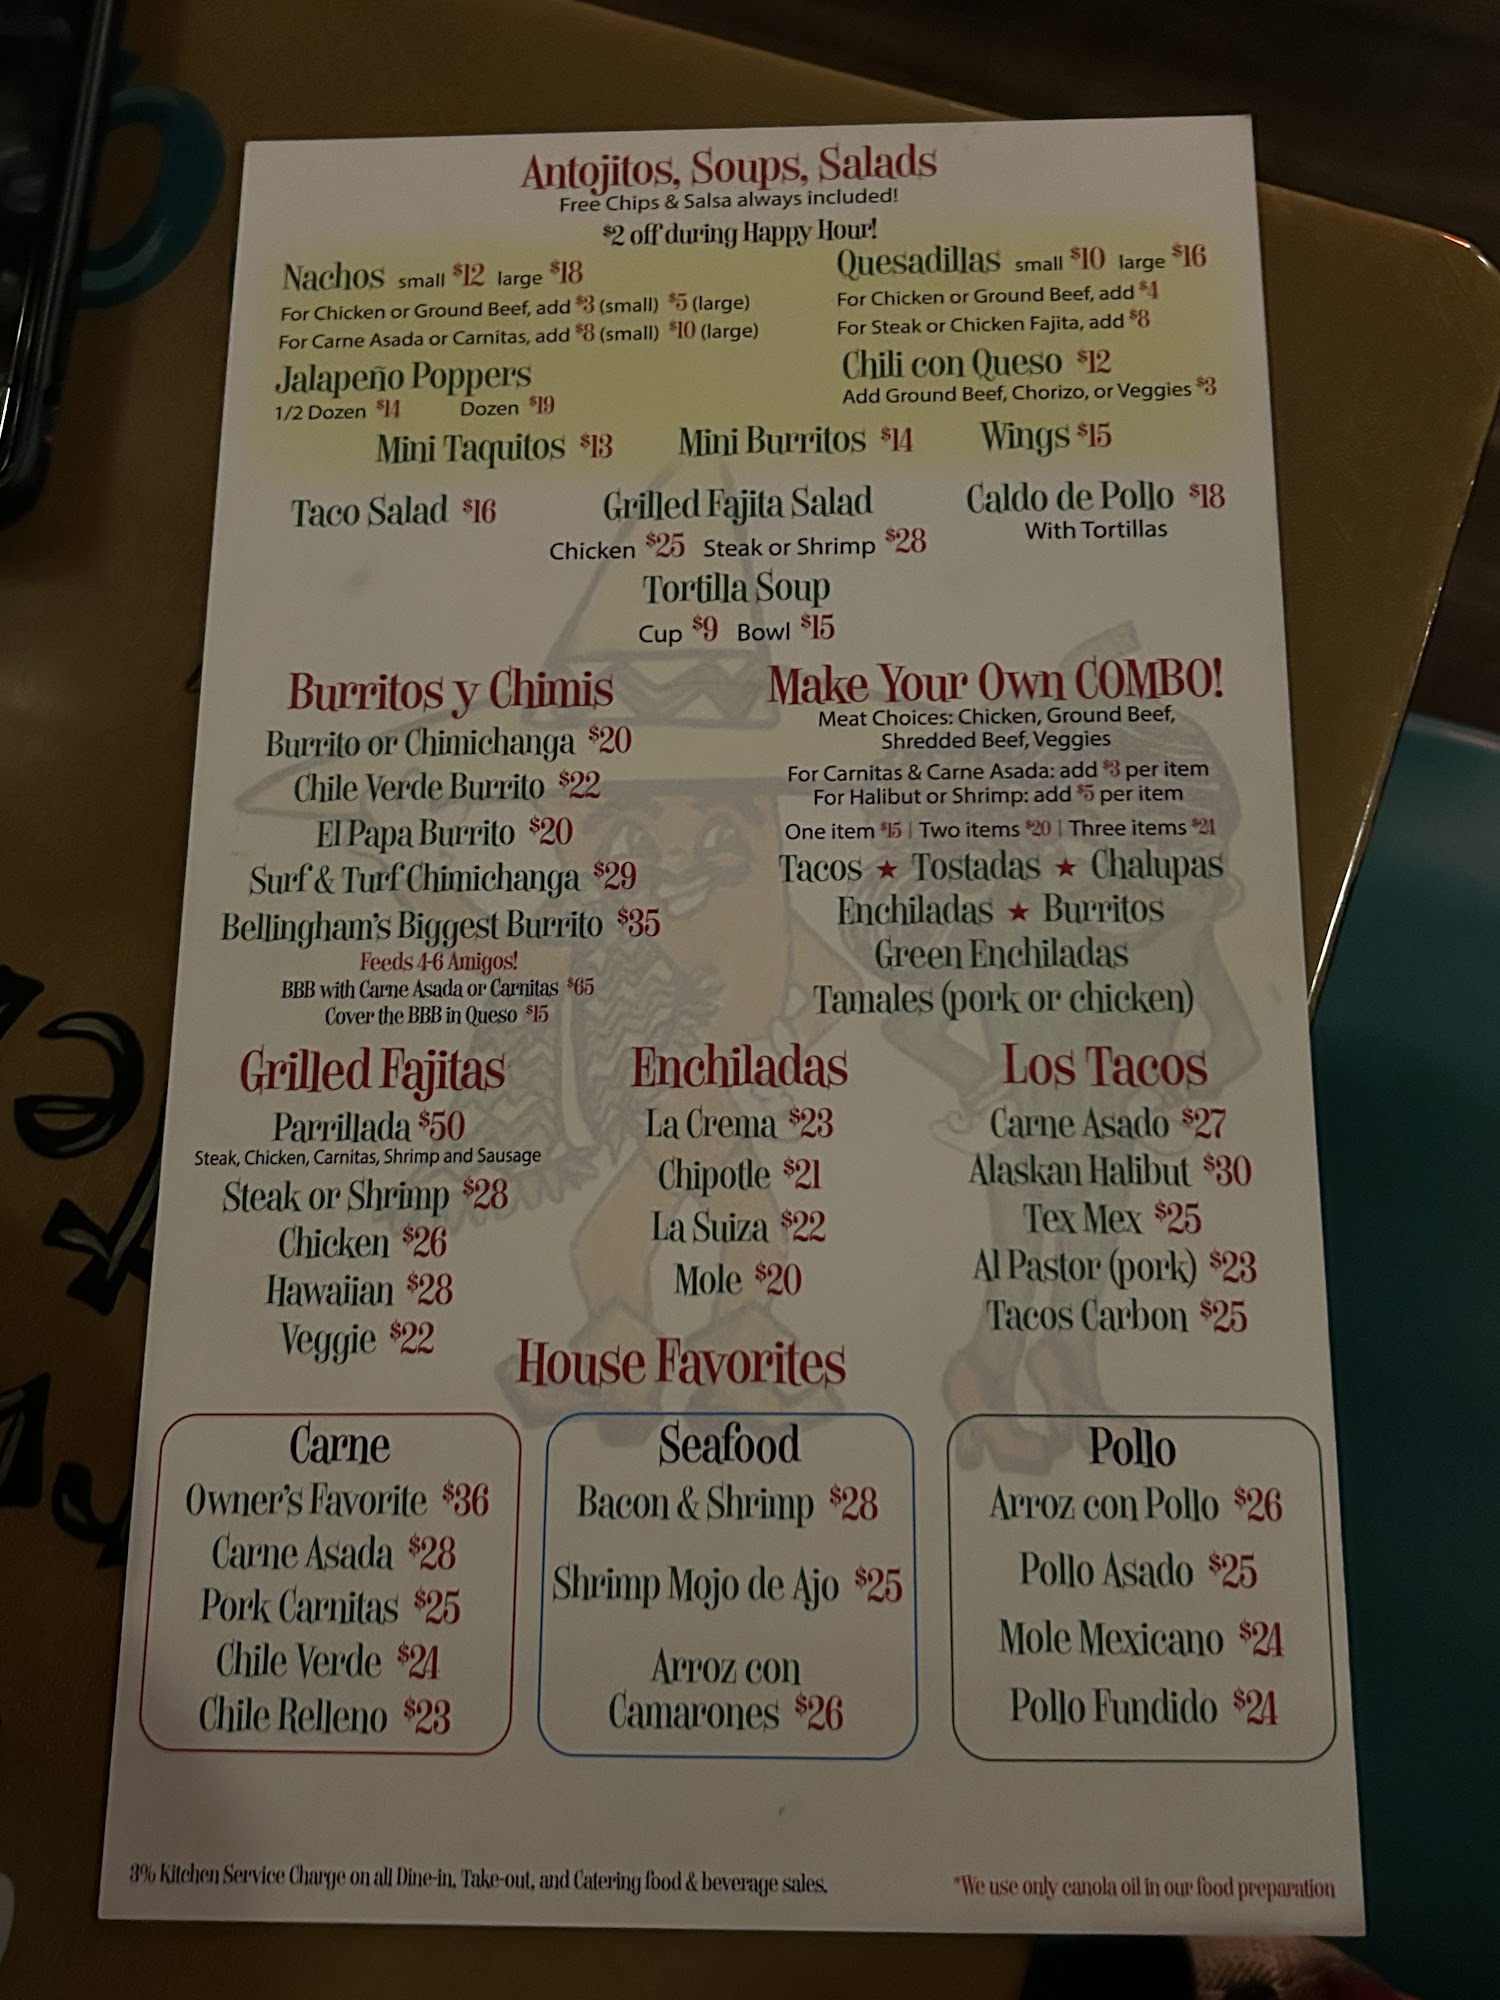 Antojitos, Soups, Salads
Free Chips & Salsa always included!
$2 off during Happy Hour!
Nachos small $12 large $18
For Chicken or Ground Beef, add $3 (small) $5 (large)
For Carne Asada or Carnitas, add $8 (small) $10 (large)
Quesadillas small $10 large $16
For Chicken or Ground Beef, add $4
For Steak or Chicken Fajita, add $8
Jalapeño Poppers
1/2 Dozen $14 Dozen $19
Chili con Queso $12
Add Ground Beef, Chorizo, or Veggies $3
Mini Taquitos $13 Mini Burritos $14 Wings $15
Taco Salad $16
Grilled Fajita Salad
Chicken $25 Steak or Shrimp $28
Caldo de Pollo $18
With Tortillas
Tortilla Soup
Cup $9 Bowl $15
Burritos y Chimis
Burrito or Chimichanga $20
Chile Verde Burrito $22
El Papa Burrito $20
Surf & Turf Chimichanga $29
Bellingham's Biggest Burrito $35
Feeds 4-6 Amigos!
BBB with Carne Asada or Carnitas $65
Cover the BBB in Queso $15
Make Your Own COMBO!
Meat Choices: Chicken, Ground Beef,
Shredded Beef, Veggies
For Carnitas & Carne Asada: add $3 per item
For Halibut or Shrimp: add $5 per item
One item $15 | Two items $20 | Three items $21
Tacos ★ Tostadas ★ Chalupas
Enchiladas ★ Burritos
Green Enchiladas
Tamales (pork or chicken)
Grilled Fajitas
Parrillada $50
Steak, Chicken, Carnitas, Shrimp and Sausage
Steak or Shrimp $28
Chicken $26
Hawaiian $28
Veggie $22
Enchiladas
La Crema $23
Chipotle $21
La Suiza $22
Mole $20
Los Tacos
Carne Asado $27
Alaskan Halibut $30
Tex Mex $25
Al Pastor (pork) $23
Tacos Carbon $25
House Favorites
Carne
Owner's Favorite $36
Carne Asada $28
Pork Carnitas $25
Chile Verde $24
Chile Relleno $23
Seafood
Bacon & Shrimp $28
Shrimp Mojo de Ajo $25
Arroz con
Camarones $26
Pollo
Arroz con Pollo $26
Pollo Asado $25
Mole Mexicano $24
Pollo Fundido $24
3% Kitchen Service Charge on all Dine-in, Take-out, and Catering food & beverage sales.
*We use only canola oil in our food preparation